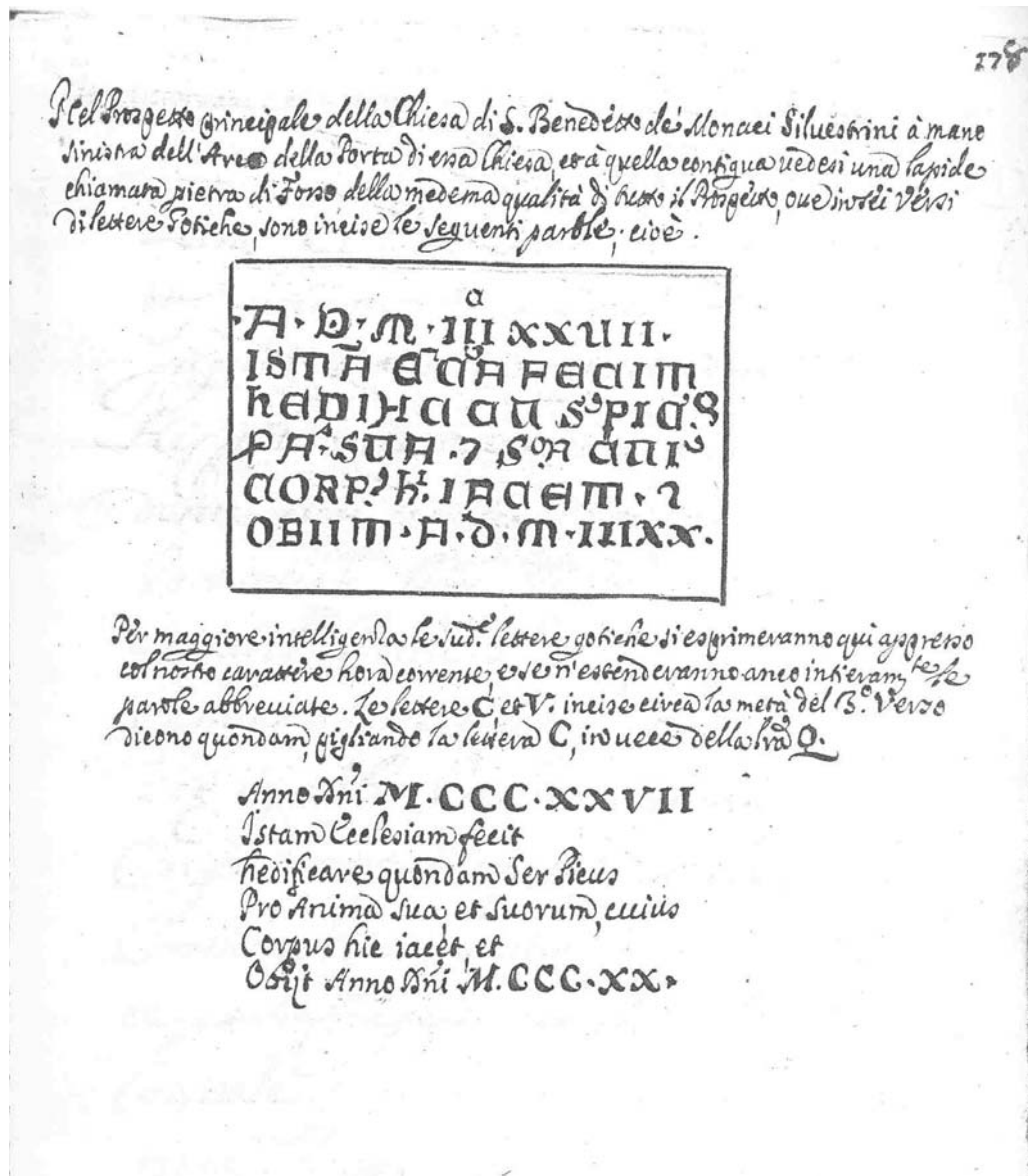 178
Nel Prospetto principale della Chiesa di S. Benedetto de' Monaci Silvestrini à mano
sinistra dell'Arco della Porta di essa Chiesa, et à quella contigua uedesi una lapide
chiamata pietra di Fosso della medema qualità di tutto il Prospetto, oue in sei Versi
di lettere Gotiche, sono incise le seguenti parole, cioè.
a
·A·D·M·III XXVII·
ISTA ECCA FECIT
hEDIFICA CU S PIC
PA SUA · 7 SOA CUI
CORP h IACET · 7
OBIIT · A · D · M · IIIXX ·
Per maggiore intelligenza le sud.e lettere gotiche si esprimeranno qui appresso
col nostro carattere hora corrente, e se n'estenderanno anco intieram.te le
parole abbreuiate. Le lettere C et V. incise circa la metà del 3.o Verso
dicono quondam, pigliando la lettera C, in uece della lra Q.
Anno Dni M·CCC·XXVII
Istam Ecclesiam fecit
hedificare quondam Ser Picus
Pro Anima sua, et suorum, cuius
Corpus hic iacet, et
Obijt Anno Dni M·CCC·XX·